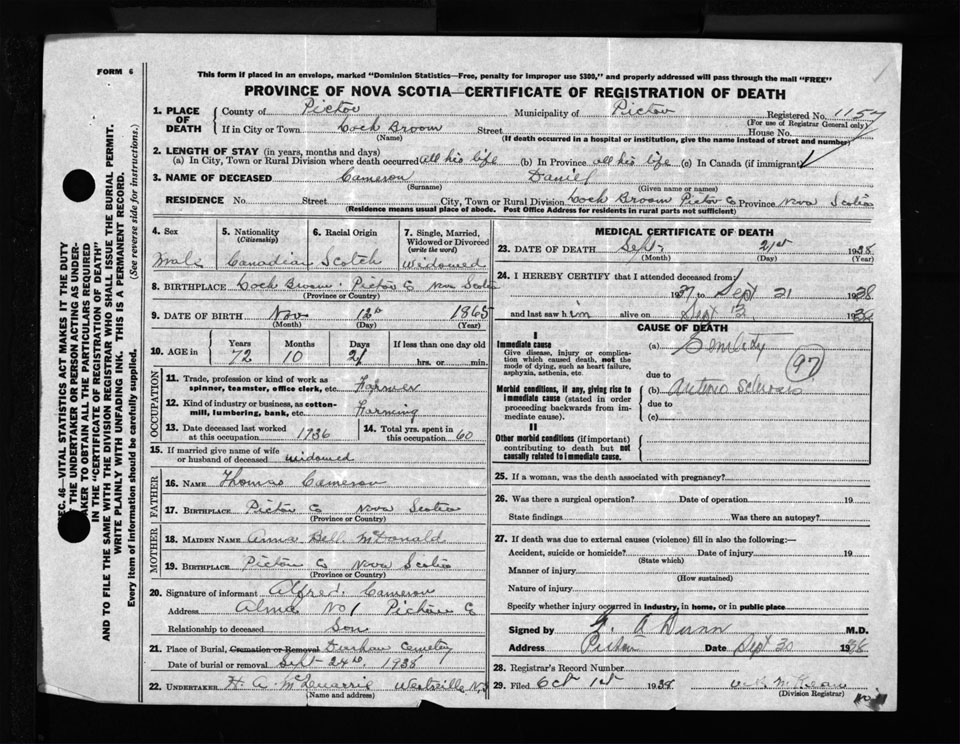 FORM 6
This form if placed in an envelops, marked "Dominion Statistics—Free, penalty for improper use $300," and properly addressed will pass through the mail "FREE"
PROVINCE OF NOVA SCOTIA—CERTIFICATE OF REGISTRATION OF DEATH
1. PLACE OF DEATH County of Pictou Municipality of Pictou Registered No. 1157
(For use of Registrar General only)
If in City or Town Loch Broom Street House No.
(Name) (If death occurred in a hospital or institution, give the name instead of street and number)
2. LENGTH OF STAY (in years, months and days)
(a) In City, Town or Rural Division where death occurred all his life (b) In Province all his life (c) In Canada (if immigrant)
3. NAME OF DECEASED Cameron Daniel
(Surname) (Given name or names)
RESIDENCE No. Street City, Town or Rural Division Loch Broom Pictou Co Province Nova Scotia
(Residence means usual place of abode. Post Office Address for residents in rural parts not sufficient)
4. Sex Male
5. Nationality (Citizenship) Canadian
6. Racial Origin Scotch
7. Single, Married, Widowed or Divorced (write the word) Widowed
8. BIRTHPLACE Loch Broom Pictou Co Nova Scotia
(Province or Country)
9. DATE OF BIRTH Nov 12th 1865
(Month) (Day) (Year)
10. AGE in Years 72 Months 10 Days If less than one day old hrs. or min.
OCCUPATION
11. Trade, profession or kind of work as spinner, teamster, office clerk, etc. Farmer
12. Kind of industry or business, as cotton-mill, lumbering, bank, etc. Farming
13. Date deceased last worked at this occupation 1936
14. Total yrs. spent in this occupation 60
15. If married give name of wife or husband of deceased widowed
FATHER
16. NAME Thomas Cameron
17. BIRTHPLACE Pictou Co Nova Scotia
(Province or Country)
MOTHER
18. MAIDEN NAME Anna Bell McDonald
19. BIRTHPLACE Pictou Co Nova Scotia
(Province or Country)
20. Signature of informant Alfred Cameron
Address Alma No 1 Pictou Co
Relationship to deceased Son
21. Place of Burial, Cremation or Removal Durham Cemetery
Date of burial or removal Sept 24th 1938
22. UNDERTAKER H. A. McQuarrie Westville N.S
(Name and address)
MEDICAL CERTIFICATE OF DEATH
23. DATE OF DEATH Sept 21st 1938
(Month) (Day) (Year)
24. I HEREBY CERTIFY that I attended deceased from
1937 to Sept 21 1938
and last saw him alive on Sept 1938
CAUSE OF DEATH
I
Immediate cause
Give disease, injury or complication which caused death, not the mode of dying, such as heart failure, asphyxia, asthenia, etc.
(a) Senility
97
due to
Morbid conditions, if any, giving rise to immediate cause (stated in order proceeding backwards from immediate cause).
(b) Arterio Sclerosis
due to
(c)
II
Other morbid conditions (if important) contributing to death but not causally related to immediate cause.
25. If a woman, was the death associated with pregnancy?
26. Was there a surgical operation? Date of operation 19
State findings Was there an autopsy?
27. If death was due to external causes (violence) fill in also the following:—
Accident, suicide or homicide? Date of injury 19
(State which)
Manner of injury
(How sustained)
Nature of injury
Specify whether injury occurred in industry, in home, or in public place
Signed by A Dunn M.D.
Address Pictou Date Sept 30 1938
28. Registrar's Record Number
29. Filed Oct 1st 1938 McKean
(Division Registrar)
SEC. 46—VITAL STATISTICS ACT MAKES IT THE DUTY
OF THE UNDERTAKER OR PERSON ACTING AS UNDER-
TAKER TO OBTAIN ALL THE PARTICULARS REQUIRED
IN THE "CERTIFICATE OF REGISTRATION OF DEATH"
AND TO FILE THE SAME WITH THE DIVISION REGISTRAR WHO SHALL ISSUE THE BURIAL PERMIT.
WRITE PLAINLY WITH UNFADING INK. THIS IS A PERMANENT RECORD.
Every item of Information should be carefully supplied. (See reverse side for instructions.)